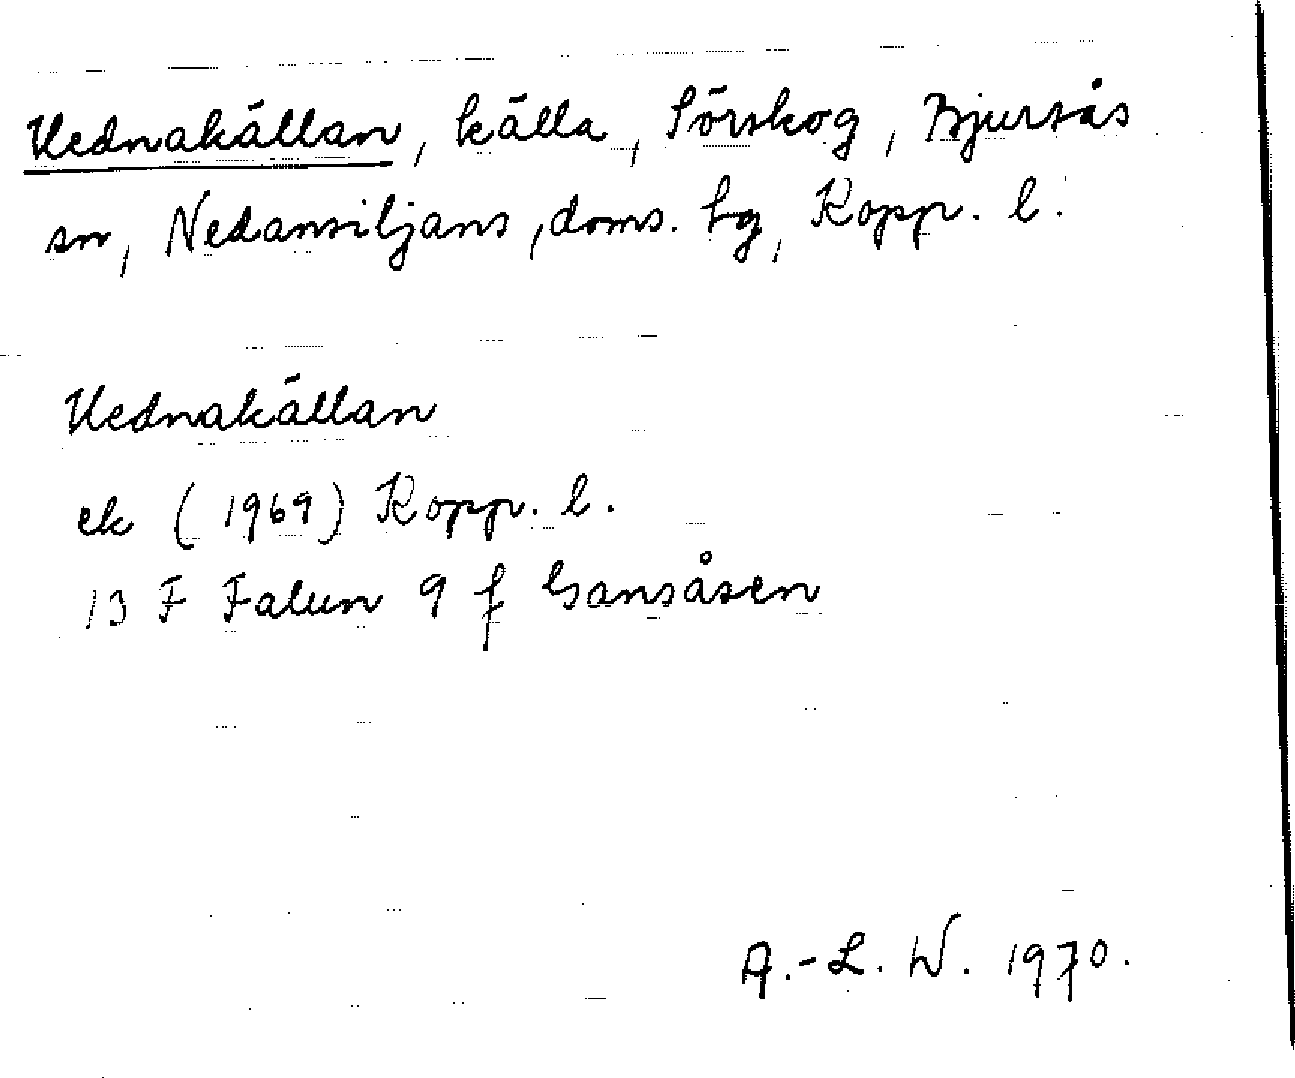 Vednakällan, källa, Sörskog, Bjursås
sn, Nedansiljans, doms. hg, Kopp. l.
Vednakällan
ek (1969) Kopp. l.
13 F Falun 9 f Gansåsen
A.-L. W. 1970.